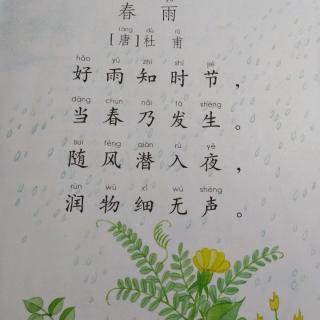 春雨
[唐]杜甫
táng dù fǔ
hǎo yǔ zhī shí jié
好雨知时节，
dāng chūn nǎi fā shēng
当春乃发生。
suí fēng qián rù yè
随风潜入夜，
rùn wù xì wú shēng
润物细无声。